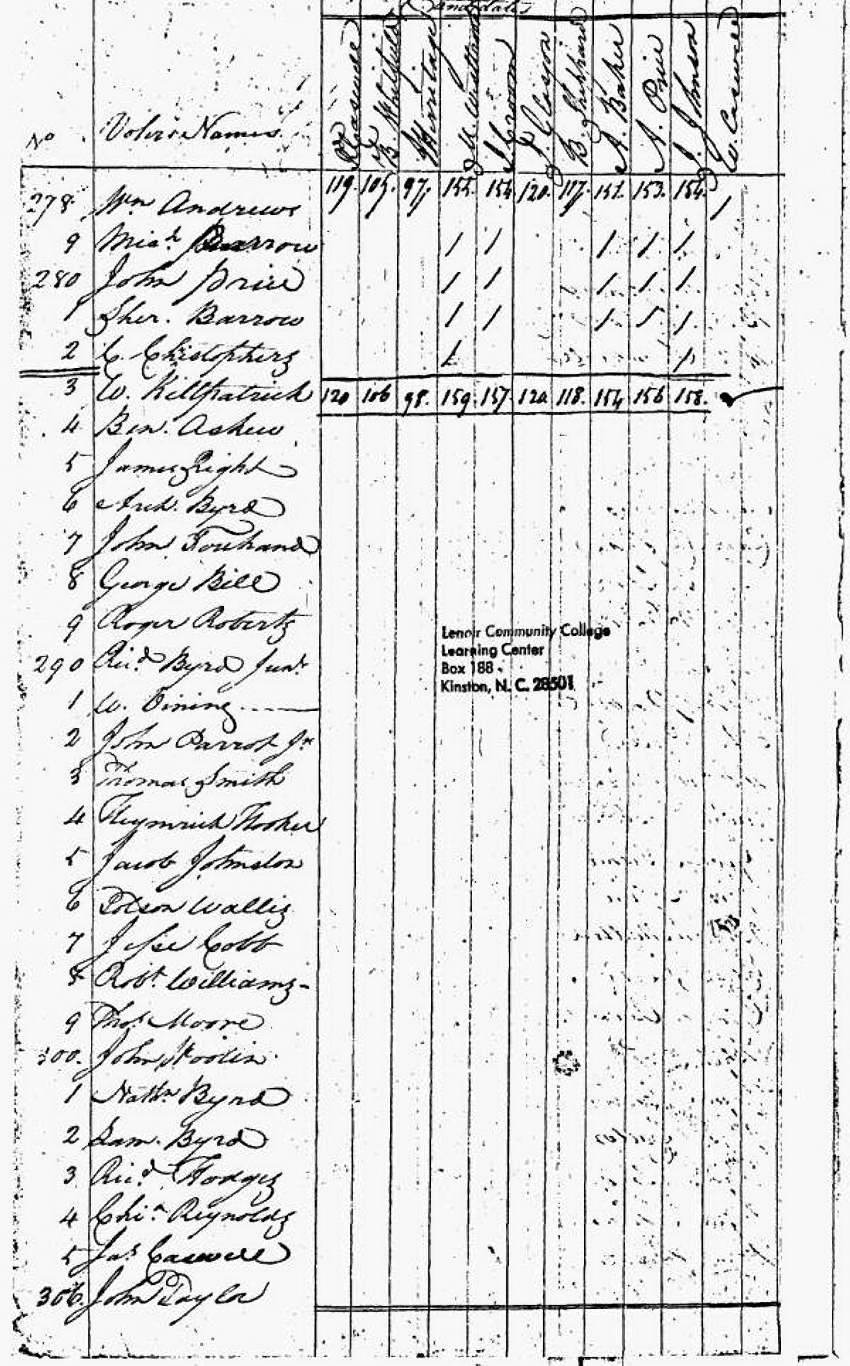 Candidates
No Voters Names R Caswell B Whitfield J Herritage J Croom J Glasgow B Sheppard A. Baker A. Price J. Johnson W Caswell
119. 105. 97. 155. 154. 120. 117. 151. 153. 154.
278 Wm Andrews /
9 Micd. Barrow / / / / /
280 John Price / / / / /
1 Sher. Barrow / / / / /
2 C. Christophers / /
3 W. Killpatrick 120 106 98. 159. 157. 120. 118. 154 156 158.
4 Ben. Askew
5 James Right
6 Arch. Byrd
7 John Forehand
8 George Bell
9 Roger Roberts
290 Ricd. Byrd Junr.
1 W. Vining
2 John Parrot Jr
3 Thomas Smith
4 Heymrick Hooker
5 Jacob Johnston
6 Potson Wallis
7 Jesse Cobb
8 Robt. Williams -
9 Thos. Moore
300. John Wootin
1 Nathn. Byrd
2 Sam. Byrd
3 Ricd. Hodges
4 Chrr. Reynolds
5 Jas. Caswell
306. John Taylor
Lenoir Community College
Learning Center
Box 188
Kinston, N. C. 28501